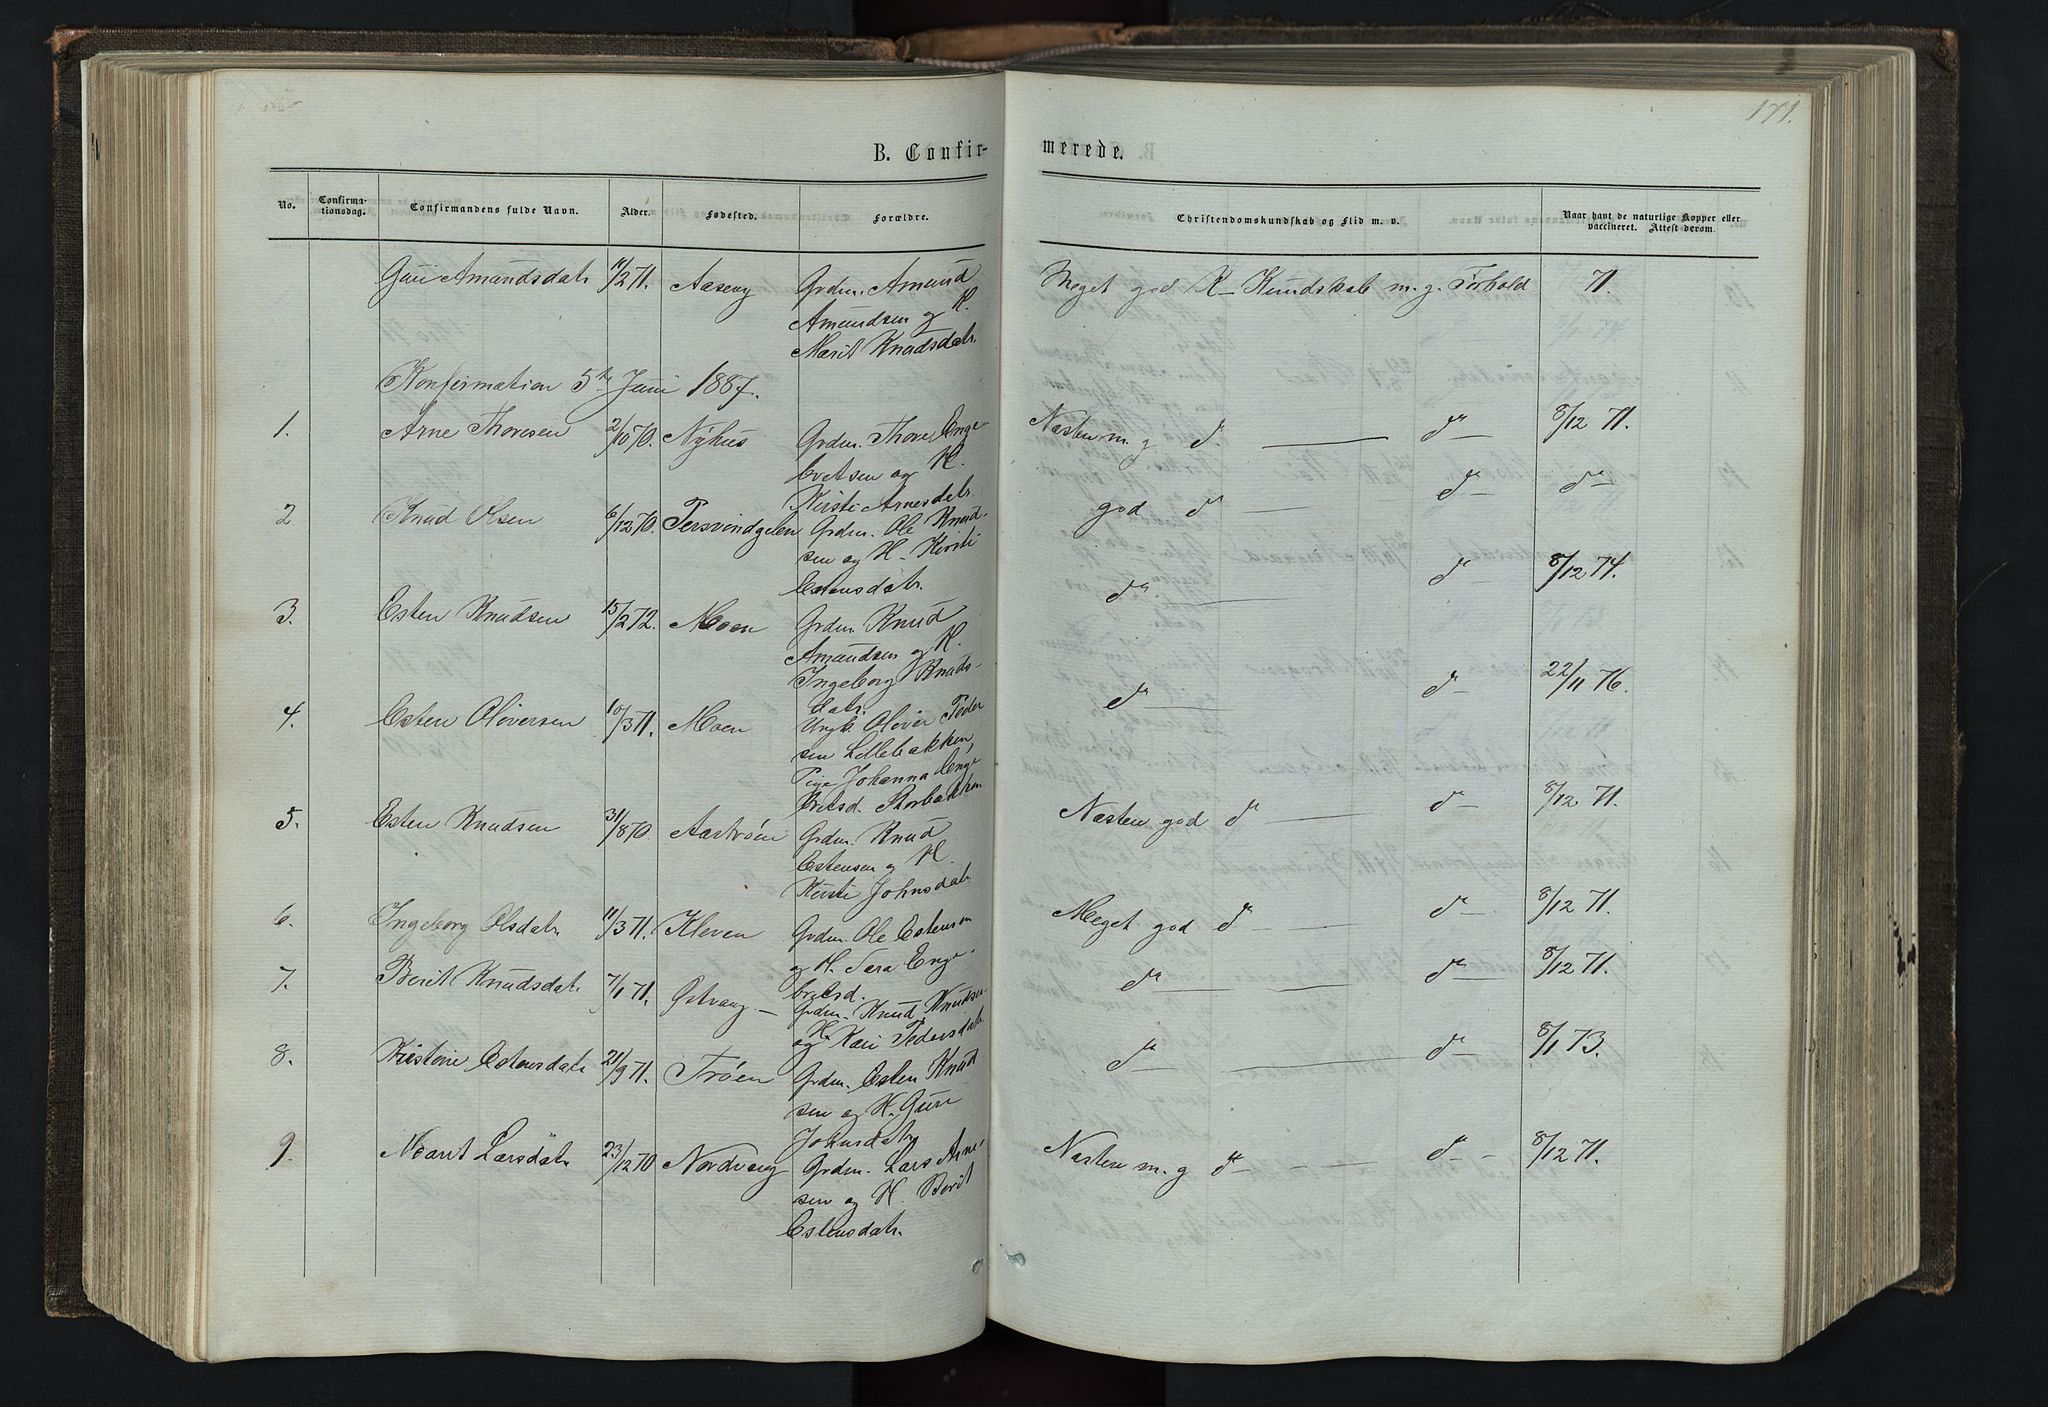 171.
B. Confir-
merede.
No.
Confirma-
tionsdag.
Confirmandens fulde Navn.
Alder.
Fødested.
Forældre.
Christendomskundskab og Flid m. v.
Naar havt de naturlige Kopper eller
vaccineret. Attest derom.
Guri Amundsdatr. 11/2 71. Aaseng Grdm. Amund
Amundsen og H.
Marit Knudsdatr.
Meget god K- Kundskab m. g. Forhold 71.
Konfirmation 5te Juni 1887.
1. Arne Thoresen 2/10 70. Nyhus Grdm. Thore Enge-
bretsen og H.
Kirsti Arnesdatr.
Næsten m. g do — do — 8/12 71.
2 Knud Olsen 6/12 70. Grdm. Ole Knud-
sen og H. Kirsti
Estensdatr.
god do — do — do —
3. Esten Knudsen 15/2 72. Moen Grdm. Knud
Amundsen og H.
Ingeborg Knuds-
datr.
do — do — 8/12 74.
4. Esten Oliversen 10/3 71. Moen Ungk. Oliver Peder
sen Lillebakken,
Pige Johanna Enge
bretsd. Storbakken
do — do — 22/11 76.
5. Esten Knudsen 31/8 70. Aastrøen Grdm. Knud
Estensen og H.
Kirsti Johnsdatr.
Næsten god do — do — 8/12 71.
6. Ingeborg Olsdatr. 11/3 71. Kleven Grdm. Ole Estensen
og H. Sara Enge-
bretsd.
Meget god do — do — 8/12 71.
7. Berit Knudsdatr. 7/1 71. Østvang — Grdm. Knud Knudsen
og H. Kari Pedersdatr.
do — do — 8/12 71.
8. Kristine Estensdatr. 21/9 71. Trøen Grdm. Esten Knud
sen og H. Guri
Johnsdatr.
do — do — 8/1 73.
9. Marit Larsdatr. 23/12 70 Nordvang Grdm. Lars Arne-
sen og H. Berit
Estensdatr.
Næsten m. g do — do — 8/12 71.